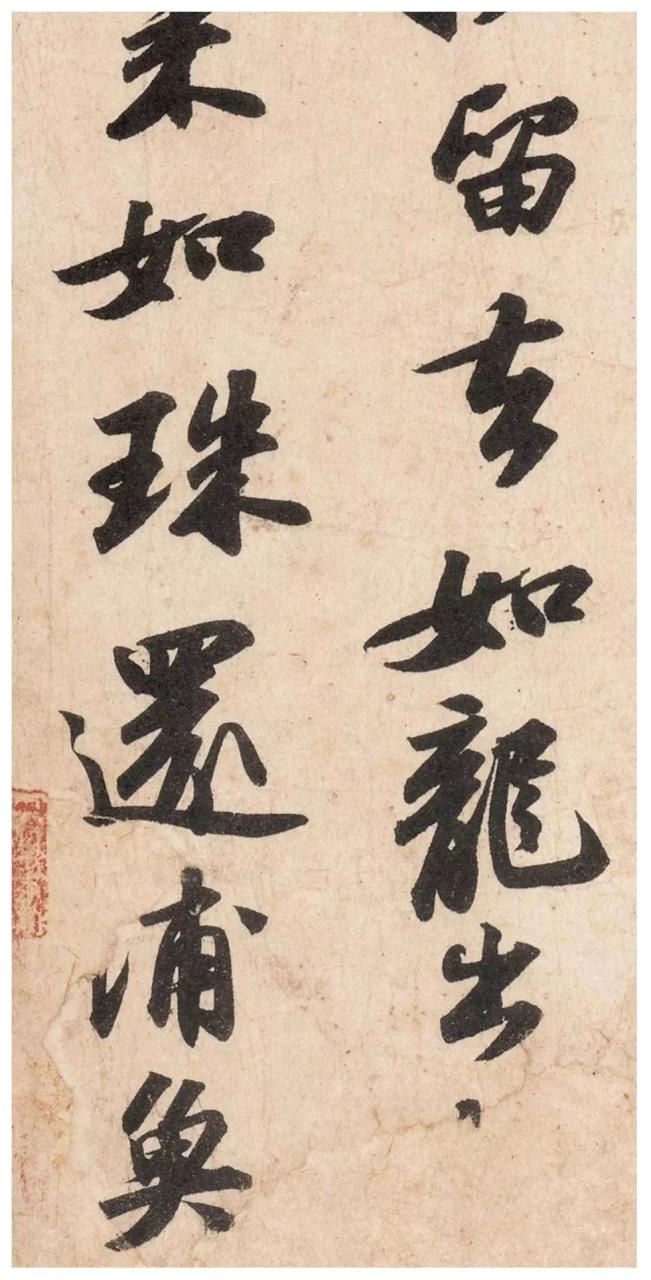 留去如龍出
來如珠還浦魚